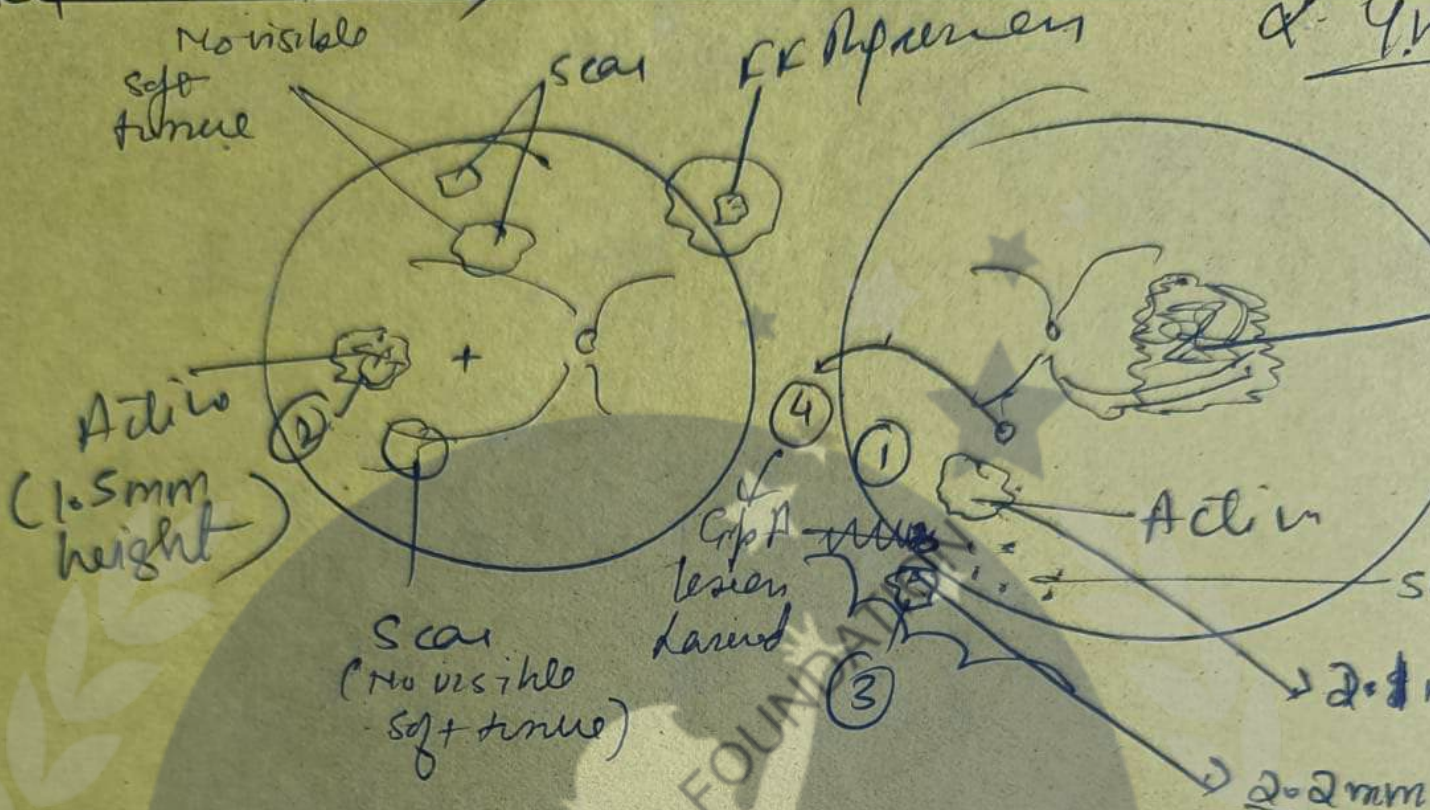 No visible
soft
tissue
Scar
Active
(1.5mm
height)
2
Scar
(No visible
soft tissue)
4
GpA
lesion
lasered
1
Active
3
S
2.2mm
FOUNDATION